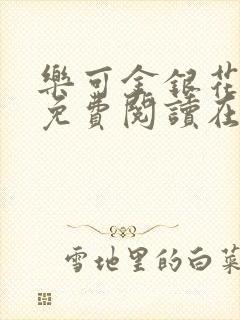 樂可金銀花
免費閱讀在
雪地里的白菜